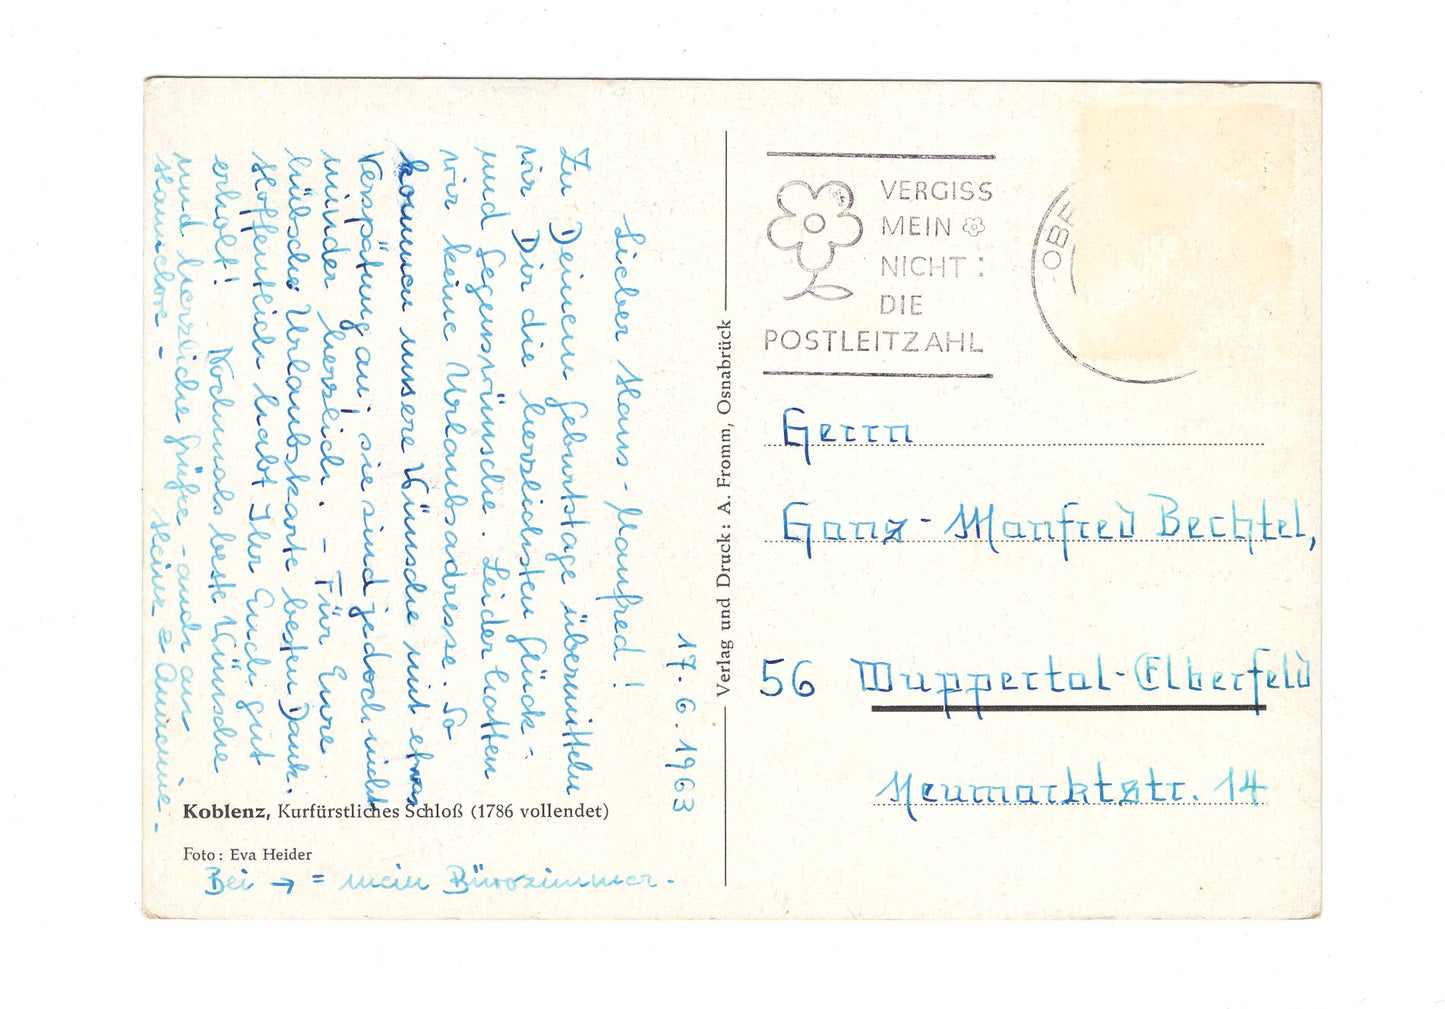 17.6.1963
Lieber Hans-Manfred!
Zu Deinem Geburtstage übermitteln
wir Dir die herzlichsten Glück-
und Segenswünsche. Leider hatten
wir keine Urlaubsadresse. So
kommen unsere Wünsche mit etwas
Verspätung an; sie sind jedoch nicht
minder herzlich. – Für Eure
hübsche Urlaubskarte besten Dank.
Hoffentlich habt Ihr Euch gut
erholt! Nochmals beste Wünsche
und herzliche Grüße – auch an
Hannelore –
Heinz & Annemie.
Koblenz, Kurfürstliches Schloß (1786 vollendet)
Foto: Eva Heider
Bei → = mein Bürozimmer.
Verlag und Druck: A. Fromm, Osnabrück
VERGISS
MEIN
NICHT:
DIE
POSTLEITZAHL
Herrn
Hans-Manfred Bechtel,
56 Wuppertal-Elberfeld
Neumarktstr. 14